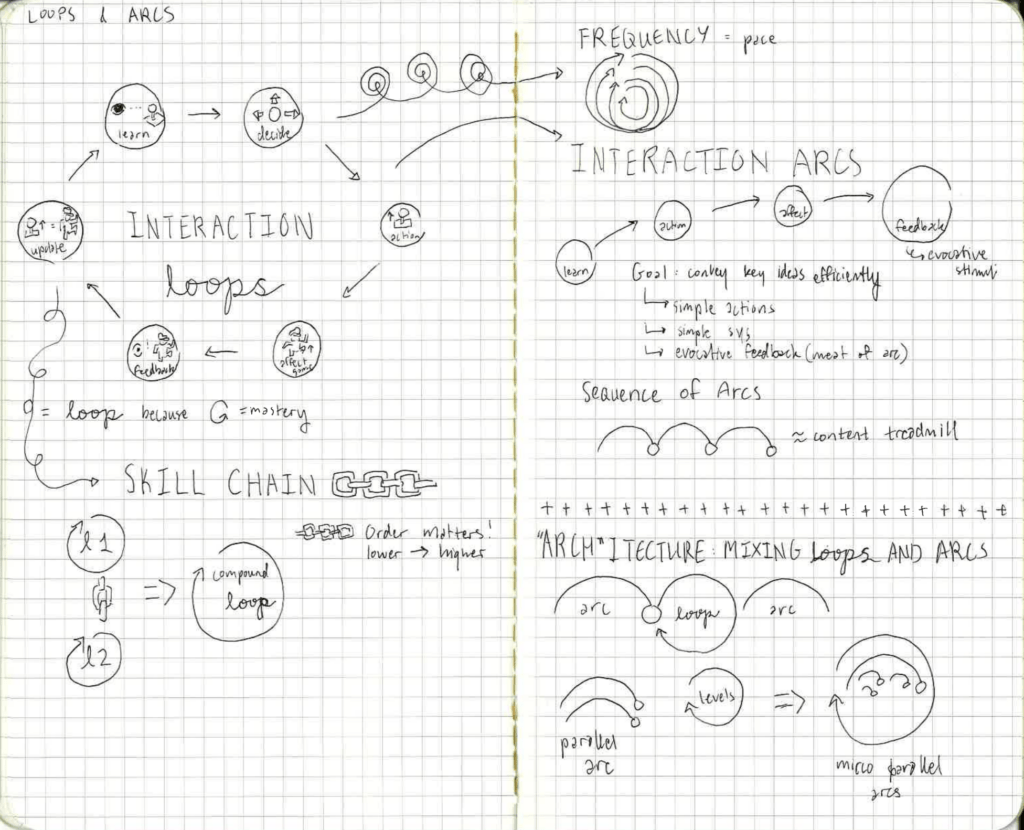 LOOPS & ARCS
learn
decide
action
affect
game
feedback
update
INTERACTION
loops
= loop because G = mastery
SKILL CHAIN
l1
l2
=> compound
loop
Order matters!
lower → higher
FREQUENCY = pace
INTERACTION ARCS
learn
action
affect
feedback
↳ evocative
stimuli
Goal: convey key ideas efficiently
↳ simple actions
↳ simple sys
↳ evocative feedback (meat of arc)
Sequence of Arcs
≈ content treadmill
+ + + + + + + + + + + + + + + + + + + + + +
"ARCH"ITECTURE: MIXING loops AND ARCS
arc loop arc
parallel
arc
levels
=>
mirco parallel
arcs